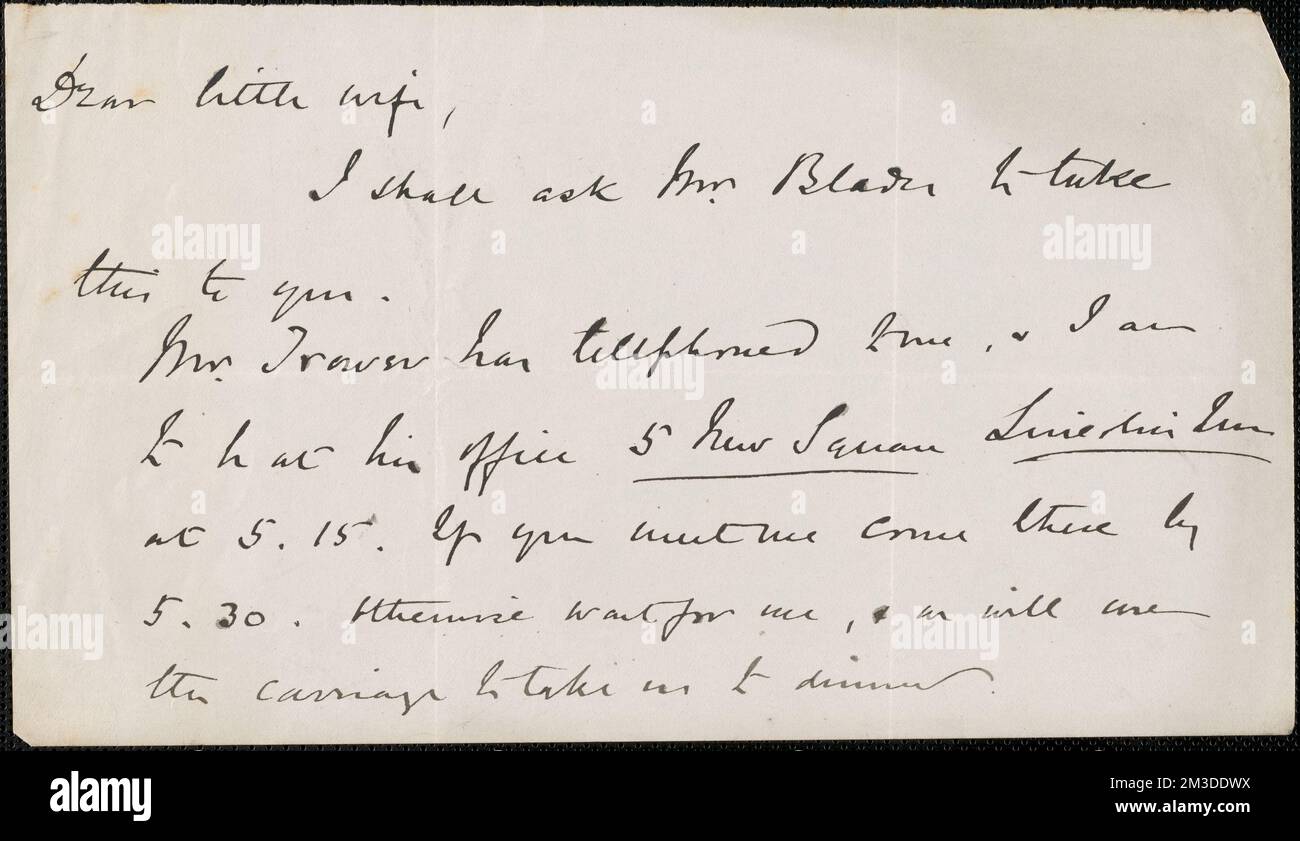 Dear little wife,
I shall ask Mr. Blades to take
this to you.
Mr. Trower has telephoned to me, & I am
to be at his office 5 New Square Lincoln's Inn
at 5.15. If you meet me come there by
5.30. Otherwise wait for me, & we will use
the carriage to take us to dinner.
alamy
alamy
Image ID: 2M3DDWX
www.alamy.com